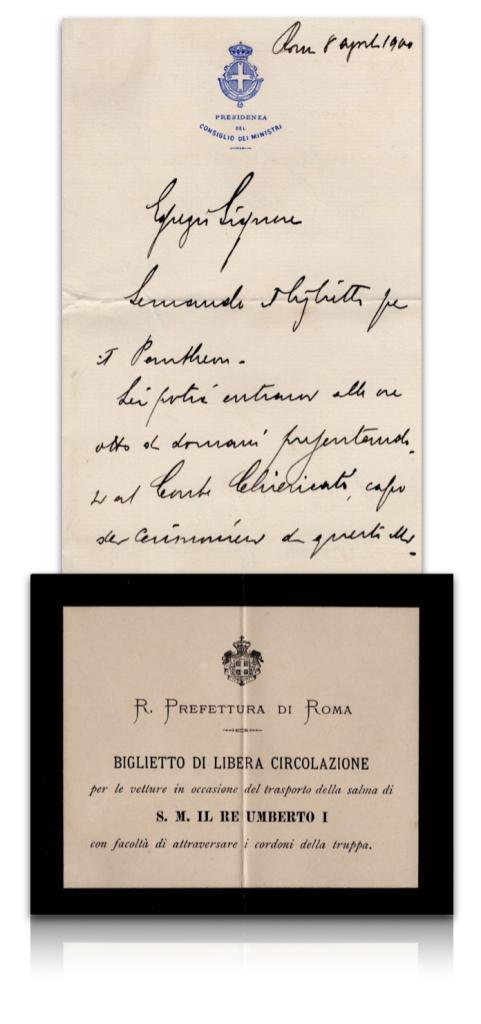 Roma 8 agosto 1900
PRESIDENZA
DEL
CONSIGLIO DEI MINISTRI
Egregio Signore
Le mando il biglietto pe
il Pantheon.
Lei potrà entrare alle ore
otto di domani presentando-
si al Conte Chiericati, capo
del Cerimoniere di questi
R. PREFETTURA DI ROMA
BIGLIETTO DI LIBERA CIRCOLAZIONE
per le vetture in occasione del trasporto della salma di
S. M. IL RE UMBERTO I
con facoltà di attraversare i cordoni della truppa.